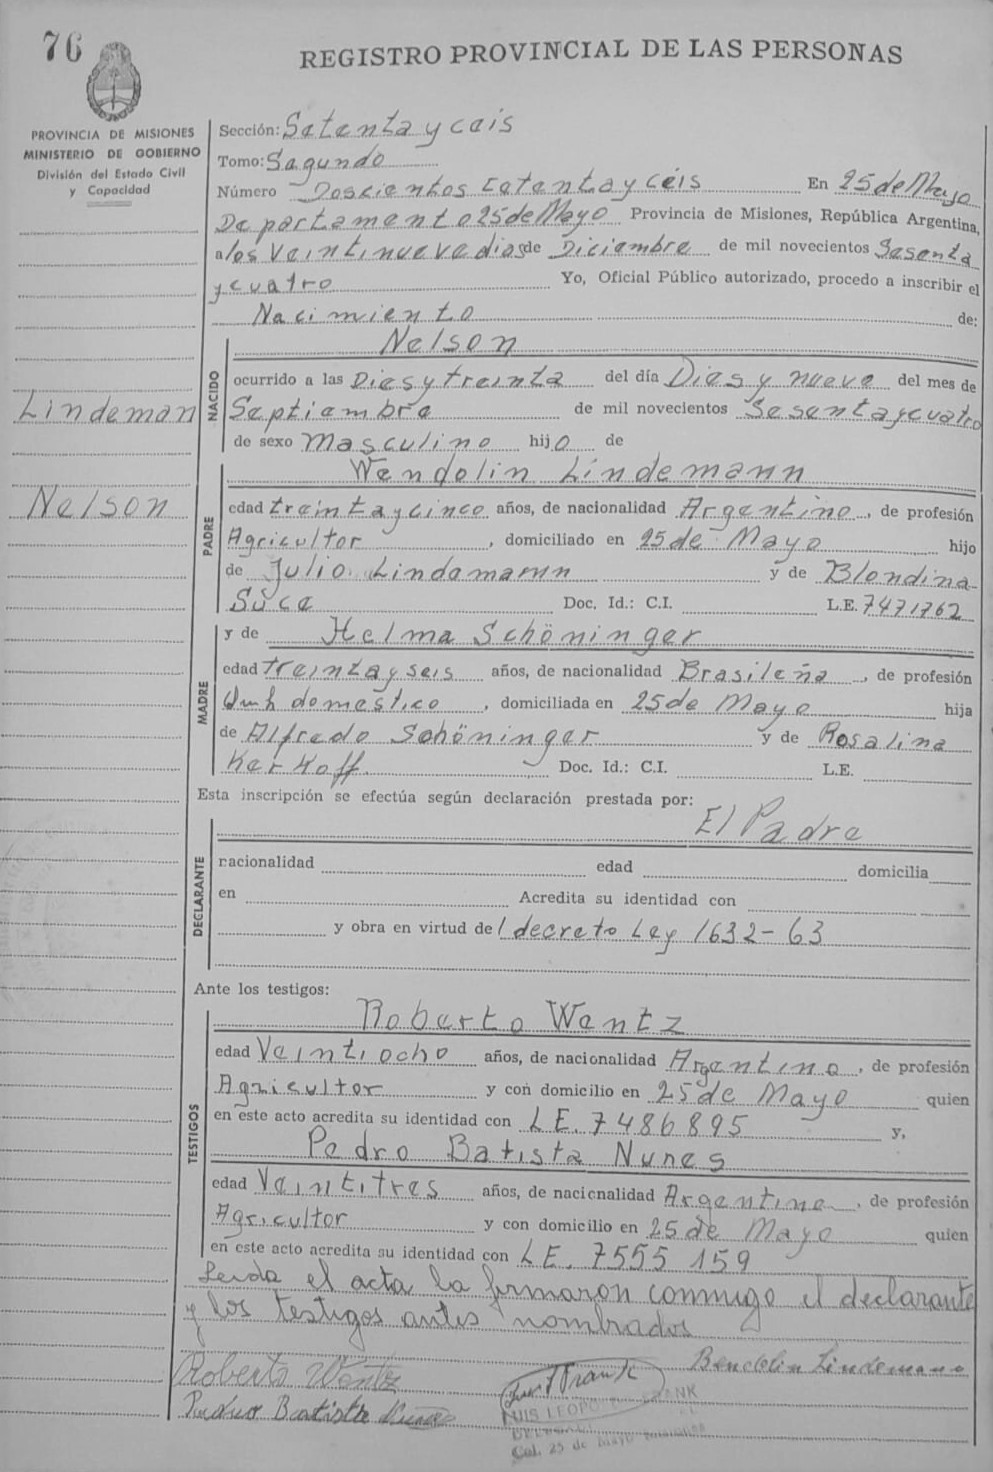 76
REGISTRO PROVINCIAL DE LAS PERSONAS
PROVINCIA DE MISIONES
MINISTERIO DE GOBIERNO
División del Estado Civil
y Capacidad
Lindeman
Nelson
Sección: Setenta y ceis
Tomo: Segundo
Número Doscientos cetenta y céis En 25 de Mayo
Departamento 25 de Mayo Provincia de Misiones, República Argentina,
a los Veintinueve dias de Diciembre de mil novecientos Sesenta
y cuatro Yo, Oficial Público autorizado, procedo a inscribir el
Nacimiento de:
NACIDO
Nelson
ocurrido a las Dies y treinta del día Dies y nueve del mes de
Septiembre de mil novecientos Sesenta y cuatro
de sexo Masculino hijo de
PADRE
Wendolin Lindemann
edad treinta y cinco años, de nacionalidad Argentino, de profesión
Agricultor, domiciliado en 25 de Mayo hijo
de Julio Lindemann y de Blondina
Süce Doc. Id.: C.I. L.E. 7471762
MADRE
y de Helma Schöninger
edad treinta y seis años, de nacionalidad Brasileña, de profesión
domestico, domiciliada en 25 de Mayo hija
de Alfredo Schöninger y de Rosalina
Kerkoff Doc. Id.: C.I. L.E.
Esta inscripción se efectúa según declaración prestada por:
El Padre
DECLARANTE
nacionalidad edad domicilia
en Acredita su identidad con
y obra en virtud del decreto Ley 1632-63
Ante los testigos:
TESTIGOS
Roberto Wentz
edad Veintiocho años, de nacionalidad Argentino, de profesión
Agricultor y con domicilio en 25 de Mayo quien
en este acto acredita su identidad con L E. 7486895 y,
Pedro Batista Nunes
edad Veintitres años, de nacionalidad Argentino, de profesión
Agricultor y con domicilio en 25 de Mayo quien
en este acto acredita su identidad con L E. 7555 159
Leida el acta la firmaron conmigo el declarante
y los testigos antes nombrados
Roberto Wentz
Bendolin Lindemann
Pedro Batista Nunes
Luis Frank
LUIS LEOPOLDO FRANK
Col. 25 de Mayo Misiones